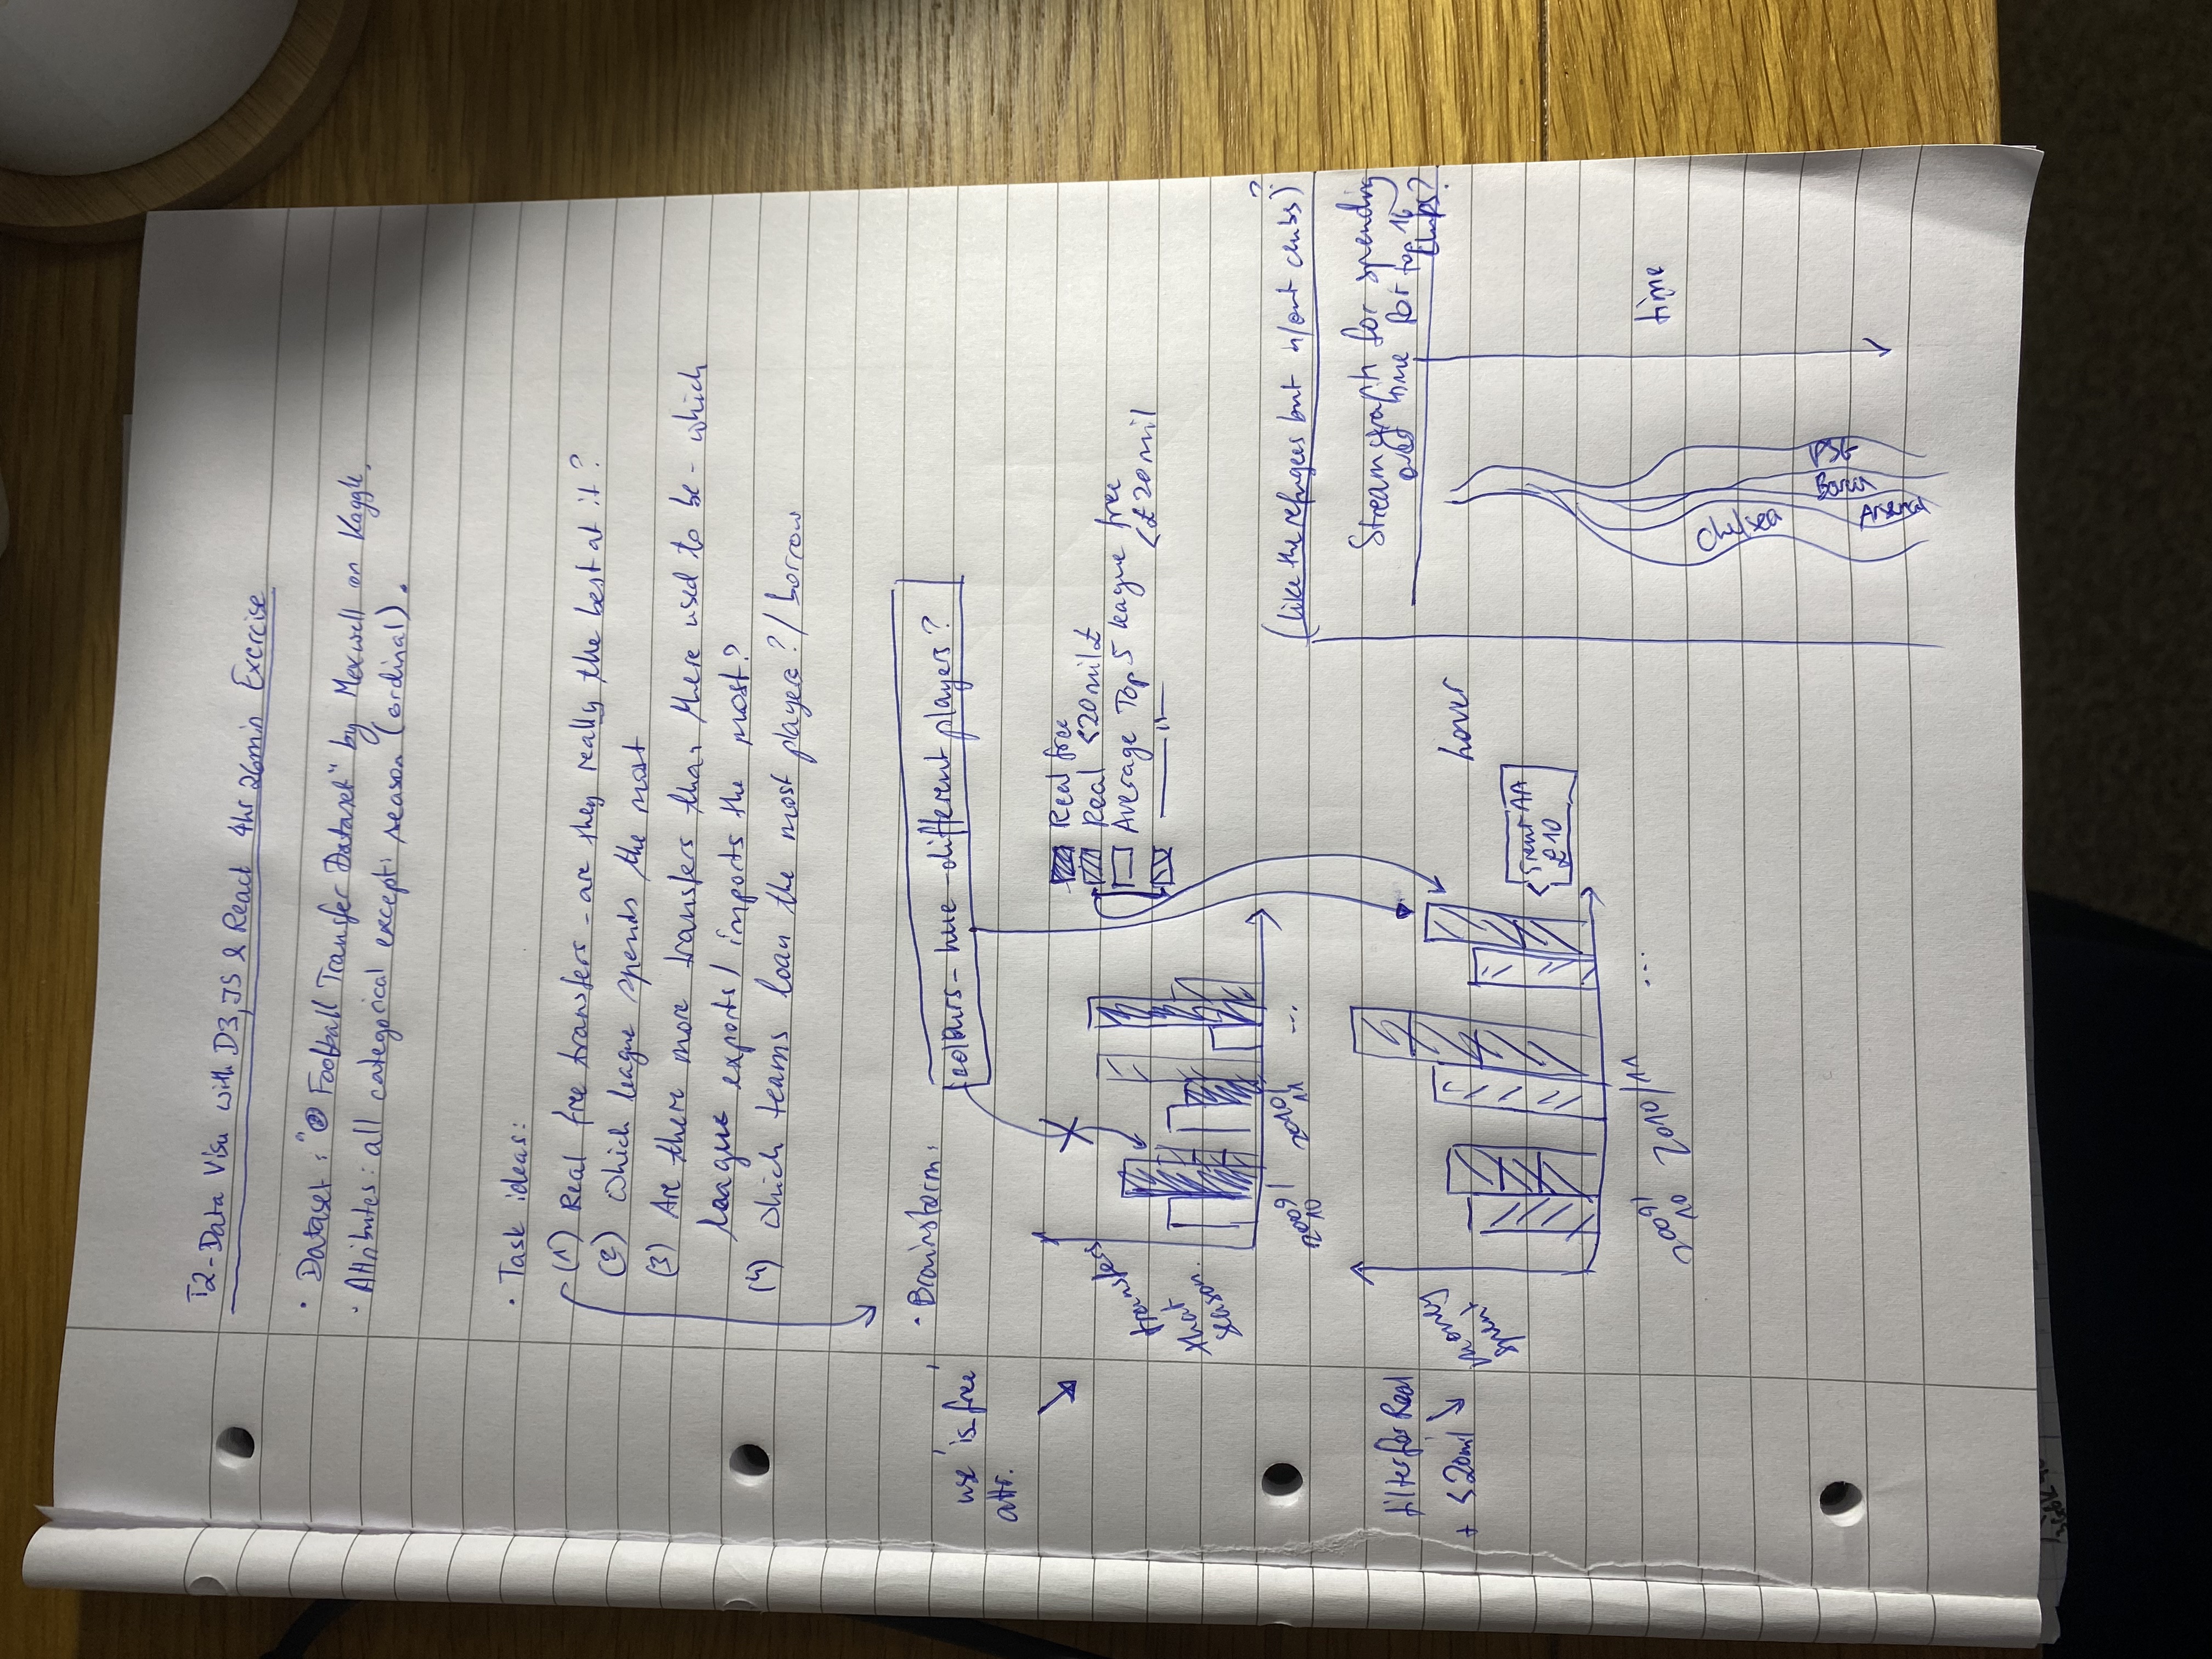 T2-Data Visu with D3, JS & React 4hr 26min Exercise
· Dataset: "⚽ Football Transfer Dataset" by Mexwell on Kaggle.
· Attributes: all categorical except: season (ordinal).
· Task ideas:
(1) Real free transfers - are they really the best at it?
(2) Which league spends the most
(3) Are there more transfers than there used to be - which
league exports/ imports the most?
(4) Which teams loan the most players?/ borrow
· Brainstorm:
colours - hue - different players?
use 'is_free'
attr.
transfers
that
season.
Real free
Real <20mil£
Average Top 5 league free
<£20mil
—— 〃 ——
2009/
10
2010/
11
...
(like the refugees but in/out clubs)?
Streamgraph for spending
over time for top 16
clubs?
filter for Real
+ <20mil
money
spent
hover
Trent AA
£10
2009/
10
2010/11
...
time
Chelsea
Arsenal
Barca
PSG